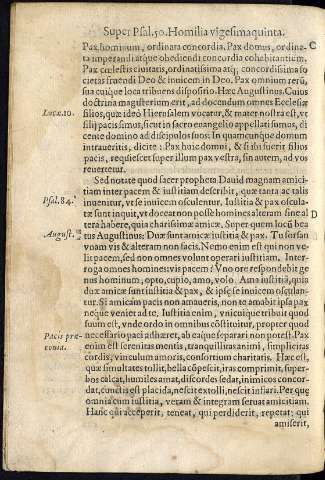 Super Psal. 50. Homilia vigesimaquinta.
Pax hominum, ordinata concordia. Pax domus, ordina-
ta imperandi atque obediendi concordia cohabitantium.
C
Pax cælestis civitatis, ordinatissima atq; concordissima so
cietas fruendi Deo & invicem in Deo. Pax omnium rerū,
sua cuique loca tribuens dispositio. Hæc Augustinus. Cuius
doctrina magisterium erit, ad docendum omnes Ecclesiæ
filios, quæ ideo Hierusalem vocatur, & mater nostra est, vt
Lucæ. 10.
filij pacis simus, sicut in sacro euangelio appellati sumus, di
cente domino ad discipulos suos: In quamcunque domum
intraueritis, dicite: Pax huic domui, & si ibi fuerit filius
pacis, requiescet super illum pax vestra, sin autem, ad vos
reuertetur.
Sed notate quod sacer propheta Dauid magnam amici-
tiam inter pacem & iustitiam describit, quæ tanta ac talis
Psal. 84.
inuenitur, vt se inuicem osculentur. Iustitia & pax oscula-
tæ sunt inquit, vt doceat non posse homines alteram sine al
D
tera habere, quia charissimæ amicæ. Super quem locū bea
August.
tus Augustinus: Duæ sunt amicæ iustitia & pax. Tu forsan
vnam vis & alteram non facis. Nemo enim est qui non ve-
lit pacem, sed non omnes volunt operari iustitiam. Inter-
roga omnes homines vis pacem? Vno ore respondebit ge
nus hominum, opto, cupio, amo, volo. Ama iustitiā, quia
duæ amicæ sunt iustitia & pax, & ipsæ se inuicem osculan-
tur. Si amicam pacis non amaueris, non te amabit ipsa pax
neque veniet ad te. Iustitia enim, vnicuique tribuit quod
suum est, vnde ordo in omnibus cōstituitur, propter quod
Pacis præ-
conia.
necessario paci adhæret, ab eaque separari non potest. Pax
enim est serenitas mentis, tranquillitas animi, simplicitas
cordis, vinculum amoris, consortium charitatis. Hæc est,
quæ simultates tollit, bella cōpescit, iras comprimit, super-
bos calcat, humiles amat, discordes sedat, inimicos concor-
dat, cunctis est placida, nescit extolli, nescit inflari. Per quę
omnia cum iustitia, veram & integram seruat amicitiam.
Hanc qui acceperit, teneat, qui perdiderit, repetat: qui
amiserit,